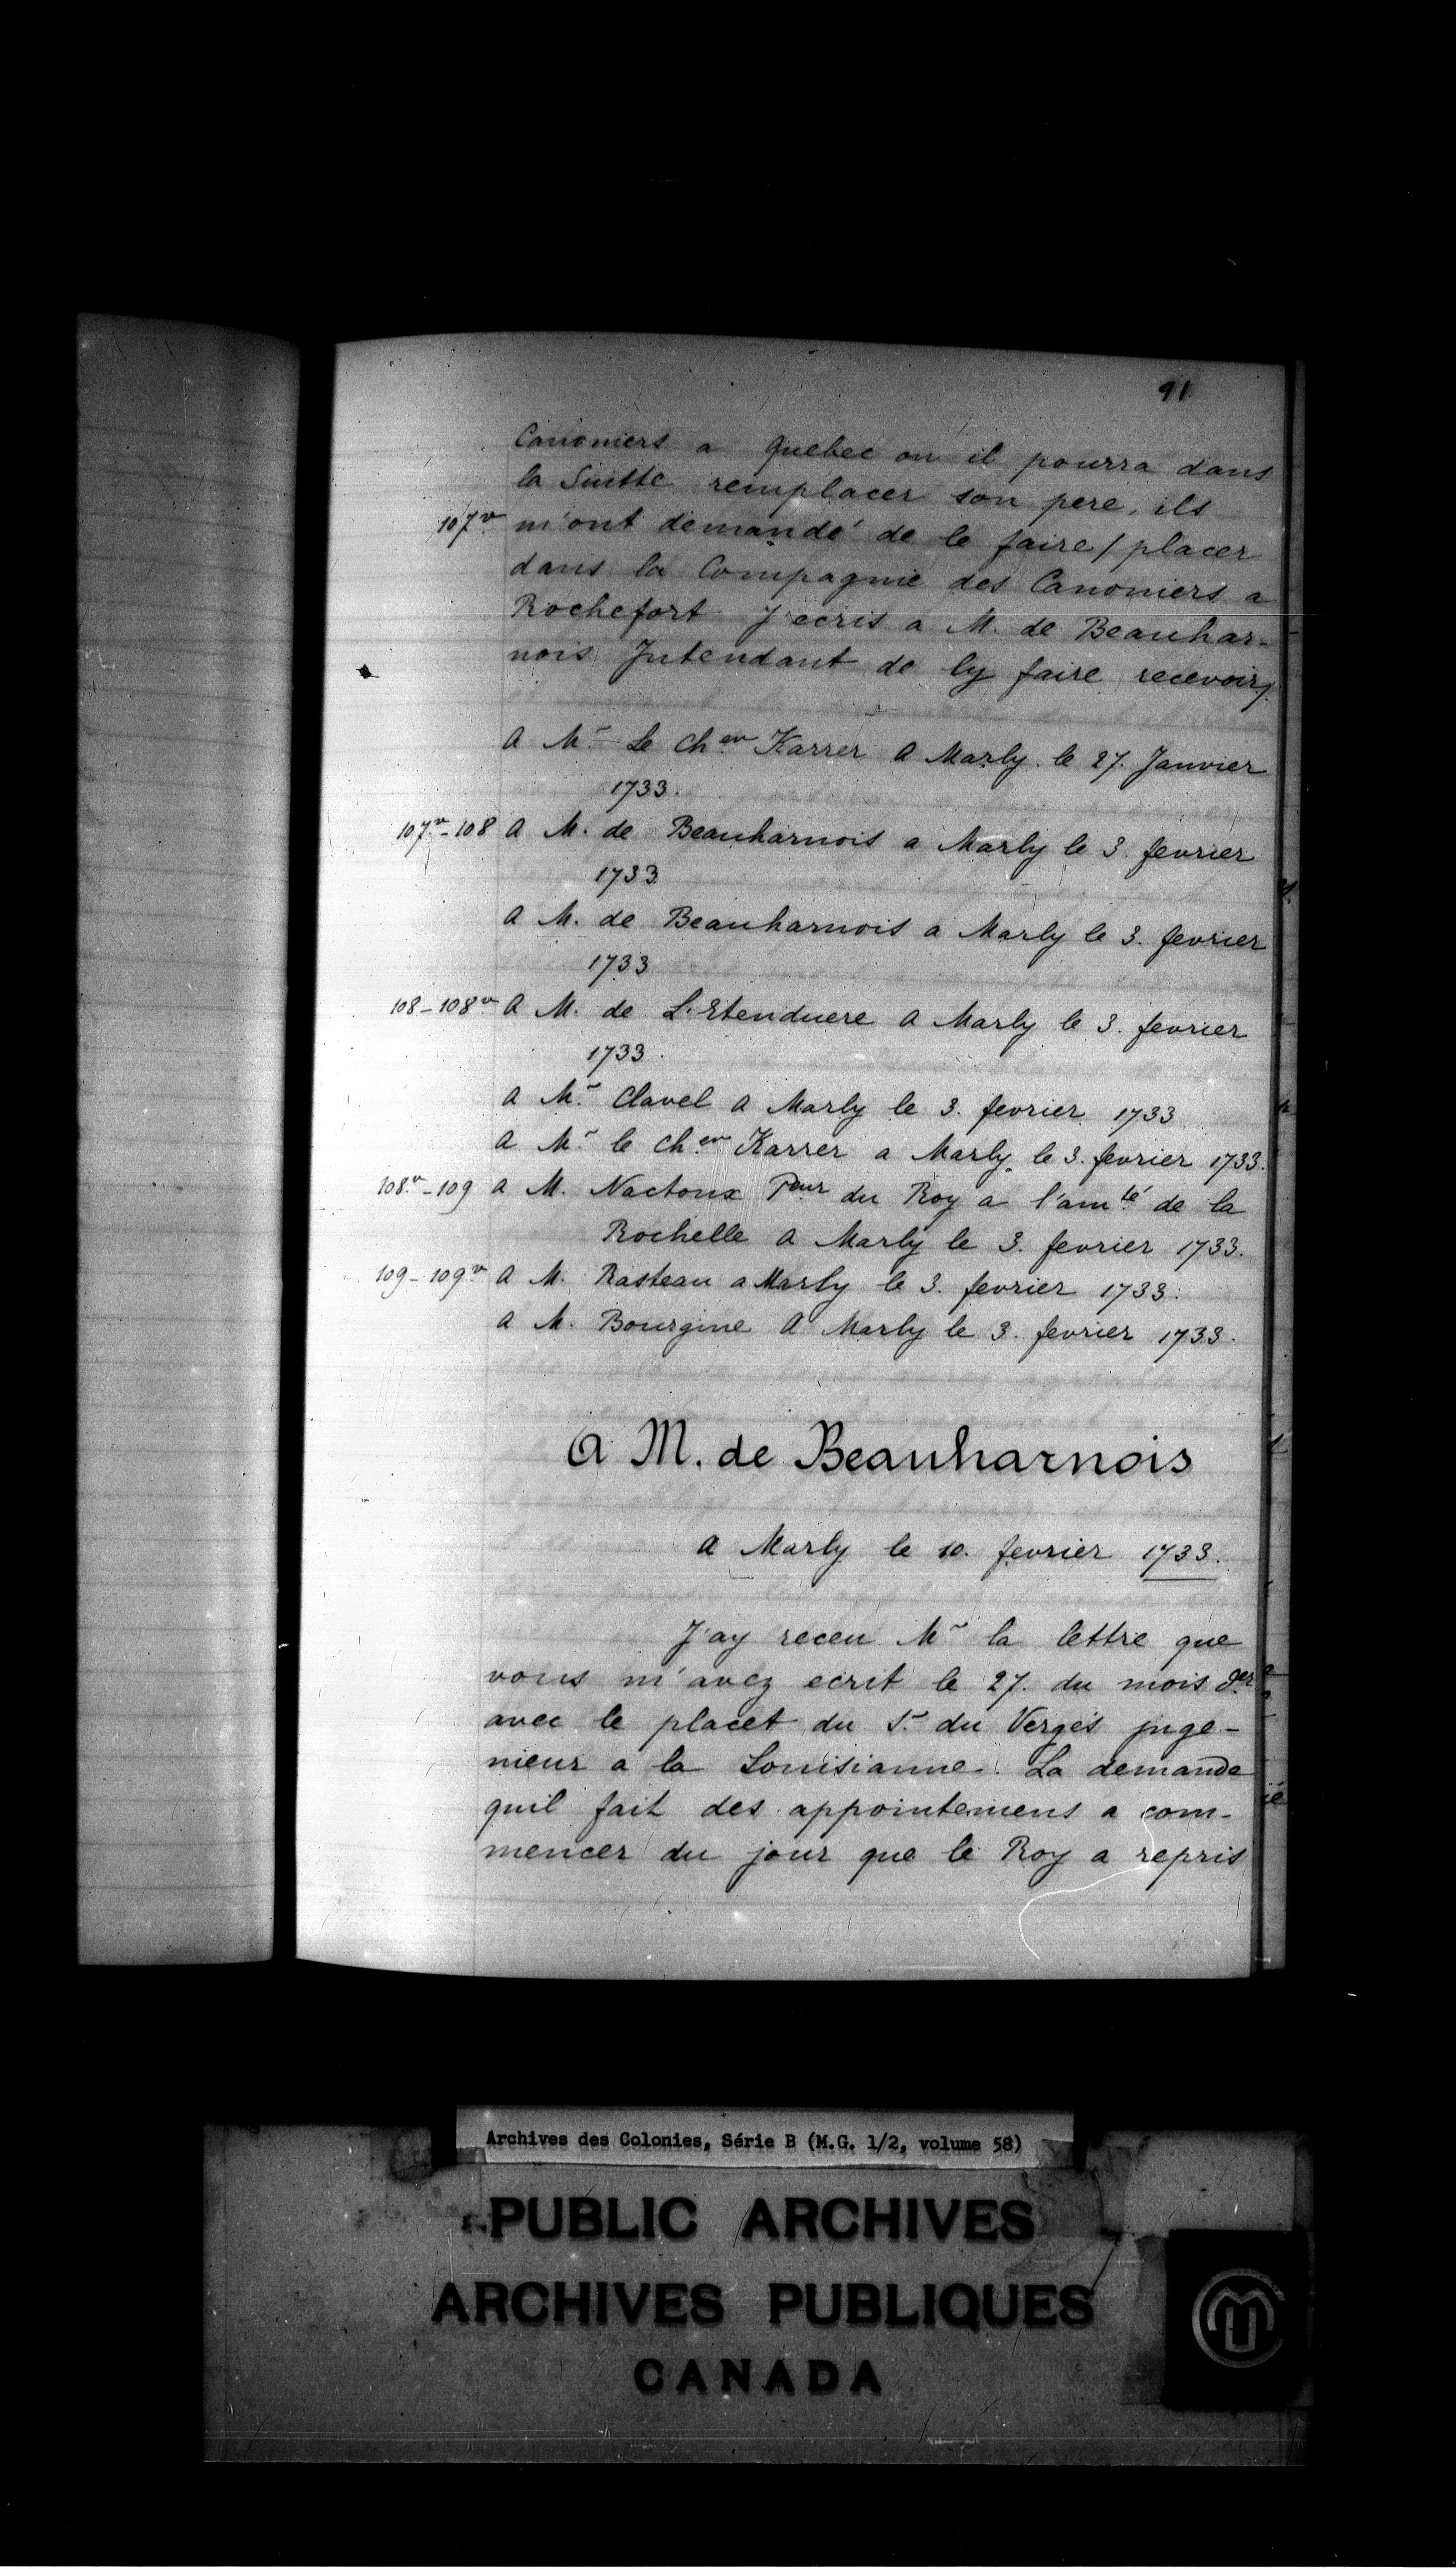 91
Canoniers a Quebec ou il pourra dans
la Suitte remplacer son pere, ils
107v. m'ont demandé de le faire / placer
dans la Compagnie des Canoniers a
Rochefort J'ecris a M. de Beauhar-
nois Intendant de ly faire recevoir /.
A Mr. Le Cher Karrer A Marly le 27. Janvier
1733.
107v.-108 A M. de Beauharnois a Marly le 3. fevrier
1733
A M. de Beauharnois a Marly le 3. fevrier
1733
108-108v. A M. de L'Etenduere A Marly le 3. fevrier
1733.
A Mr. Clavel A Marly le 3. fevrier 1733
A Mr. le Cher Karrer a Marly le 3. fevrier 1733.
108v.-109 A M. Nactoux Peur du Roy a l'amté de la
Rochelle A Marly le 3. fevrier 1733.
109-109v. A M. Rasteau a Marly le 3. fevrier 1733.
A M. Bourgine A Marly le 3. fevrier 1733.
A M. de Beauharnois
A Marly le 10. fevrier 1733.
J'ay receu Mr la lettre que
vous m'avez ecrit le 27. du mois der
avec le placet du Sr. du Vergés inge-
nieur a la Louisianne. La demande
quil fait des appointemens a com-
mencer du jour que le Roy a repris
Archives des Colonies, Série B (M.G. 1/2, volume 58)
PUBLIC ARCHIVES
ARCHIVES PUBLIQUES
CANADA